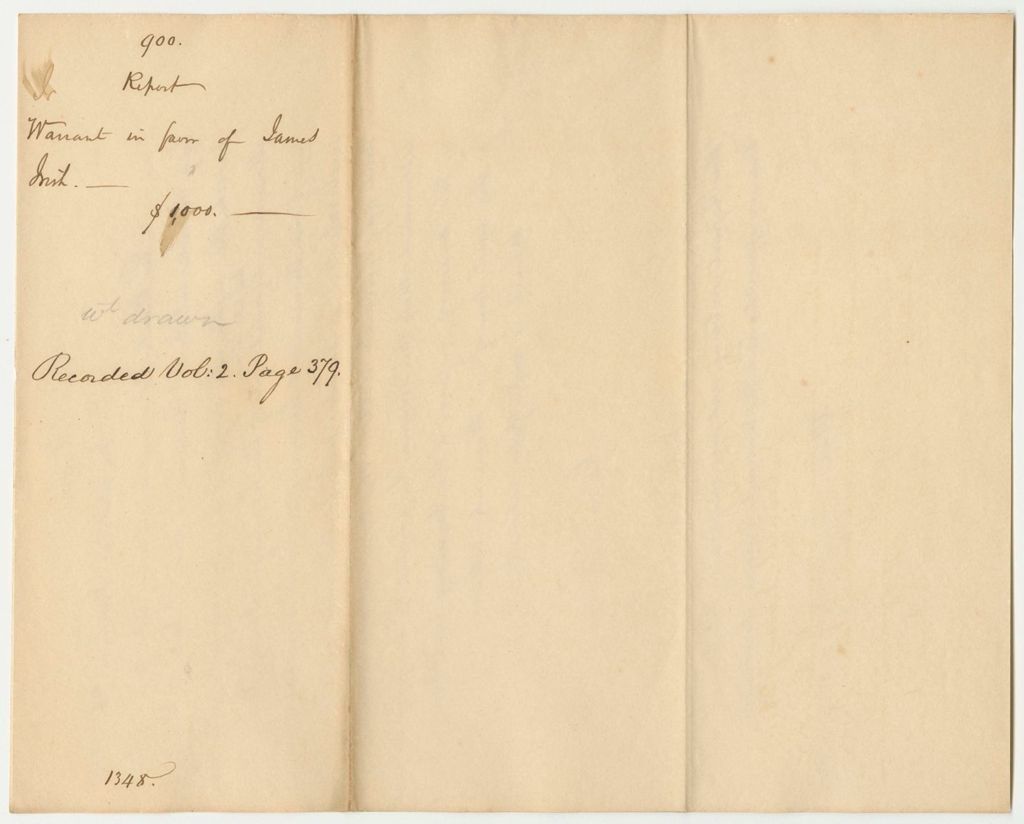 900.
Report
Warrant in favor of James
Irish. —
$1,000. —
wt drawn
Recorded Vol: 2. Page 379.
1348.